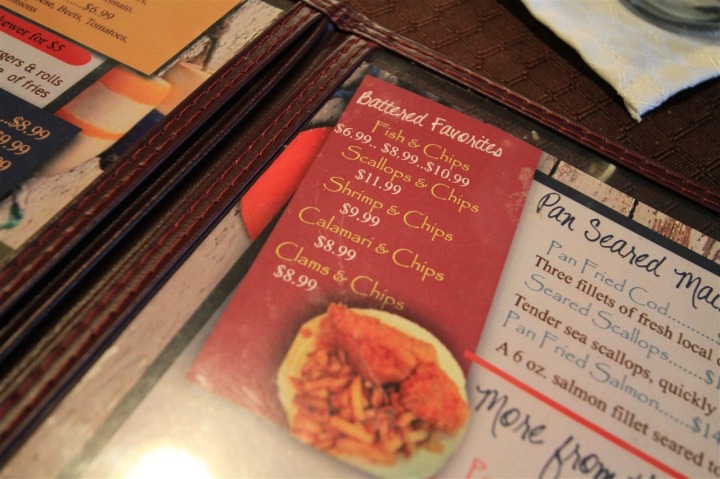 $6.99
Beets, Tomatoes,
for $5
& rolls
of fries
$8.99
Battered Favorites
Fish & Chips
$6.99.. $8.99..$10.99
Scallops & Chips
$11.99
Shrimp & Chips
$9.99
Calamari & Chips
$8.99
Clams & Chips
$8.99
Pan Seared
Pan Fried Cod
Three fillets of fresh local
Seared Scallops
Tender sea scallops, quickly
Pan Fried Salmon
A 6 oz. salmon fillet seared to
More from